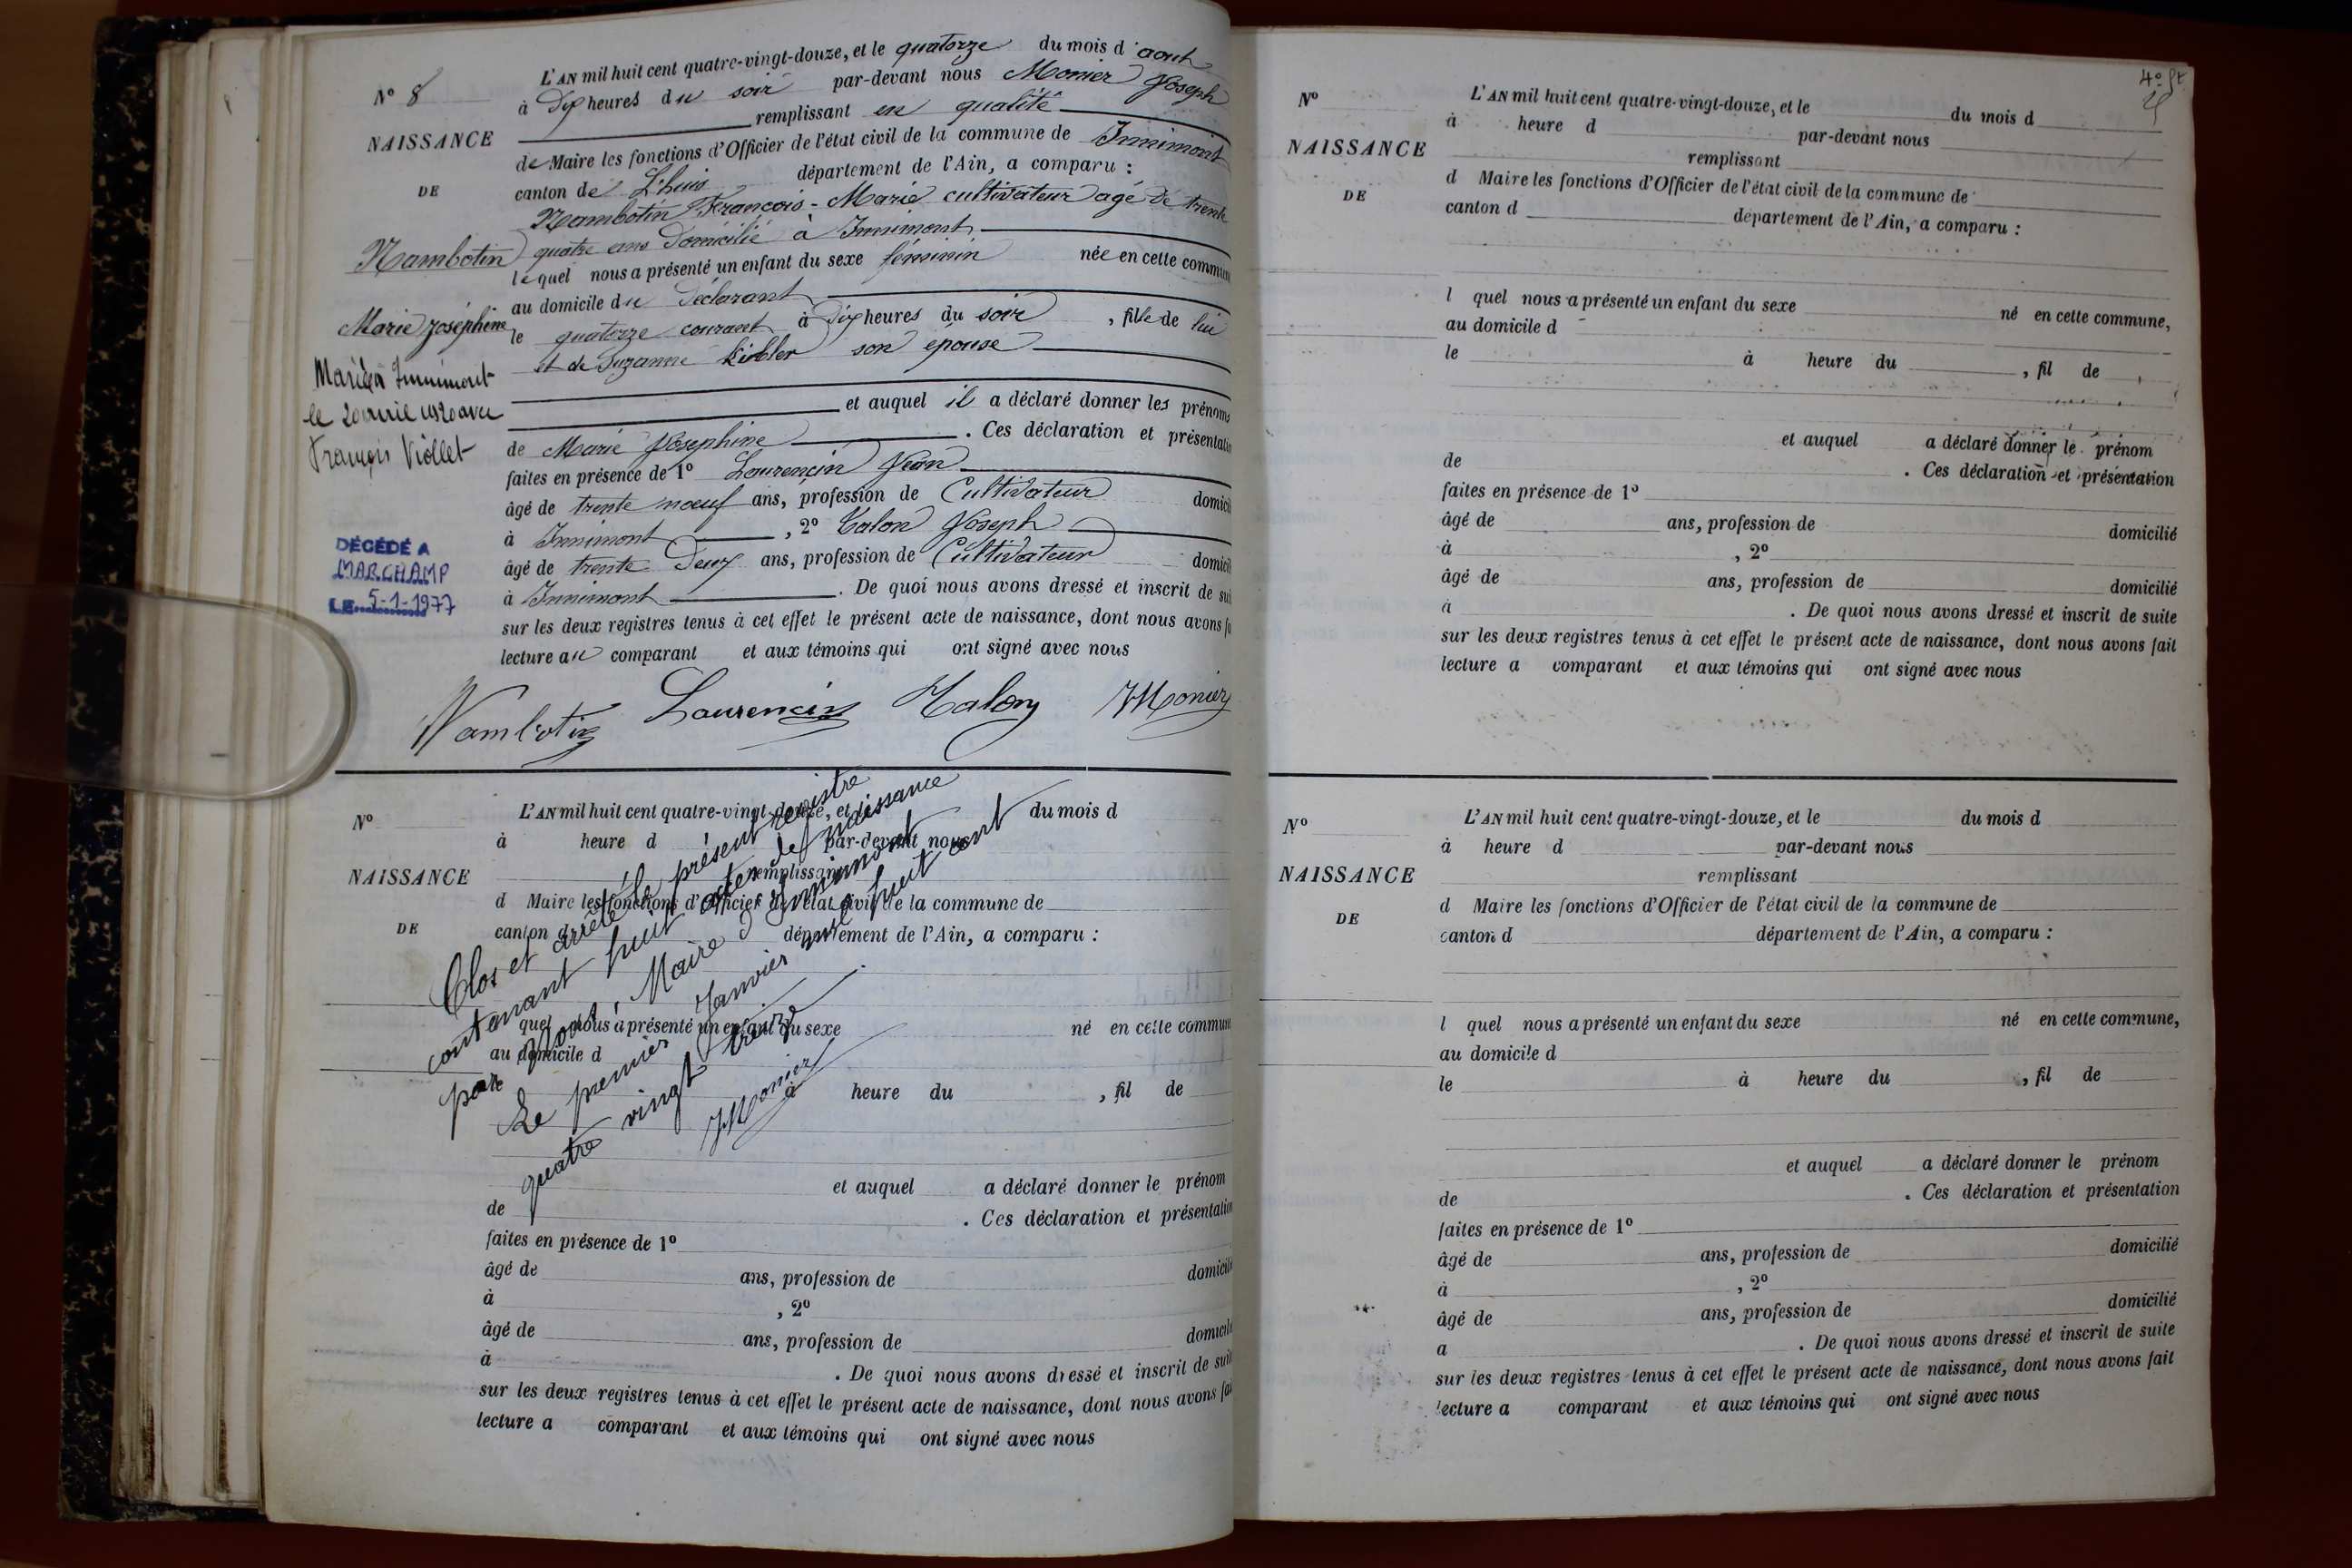 N° 8
NAISSANCE
DE
Nambotin
Marie Joséphine
Mariée à Innimont
le 20 avril 1920 avec
François Viollet
DÉCÉDÉ A
MARCHAMP
LE 5-1-1977
L'AN mil huit cent quatre-vingt-douze, et le quatorze du mois d'aout
à Dix heures du soir par-devant nous Monier Joseph
remplissant en qualité
de Maire les fonctions d'Officier de l'état civil de la commune de Innimont
canton de L'huis département de l'Ain, a comparu :
Nambotin François-Marie cultivateur agé de trente
quatre ans Domicilié à Innimont
lequel nous a présenté un enfant du sexe féminin née en cette commun
au domicile du Déclarant
le quatorze courant à Dix heures du soir, fille de lui
et de Suzanne Kibler son épouse
et auquel il a déclaré donner les prénoms
de Marie Josephine. Ces déclaration et présentatio
faites en présence de 1° Laurencin Jean
âgé de trente noeuf ans, profession de Cultivateur domicil
à Innimont, 2° Talon Joseph
âgé de trente Deux ans, profession de Cultivateur domicil
à Innimont. De quoi nous avons dressé et inscrit de sui
sur les deux registres tenus à cet effet le présent acte de naissance, dont nous avons fa
lecture au comparant et aux témoins qui ont signé avec nous
Nambotin Laurencin Talon JMonier
N°
NAISSANCE
DE
L'AN mil huit cent quatre-vingt-douze, et le du mois d
à heure d par-devant nous
remplissant
d Maire les fonctions d'Officier de l'état civil de la commune de
canton d département de l'Ain, a comparu :
quel nous a présenté un enfant du sexe né en cette commun
au domicile d
à heure du , fil de
et auquel a déclaré donner le prénom
de . Ces déclaration et présentatio
faites en présence de 1°
âgé de ans, profession de domicili
à , 2°
âgé de ans, profession de domicili
à . De quoi nous avons dressé et inscrit de suit
sur les deux registres tenus à cet effet le présent acte de naissance, dont nous avons fai
lecture a comparant et aux témoins qui ont signé avec nous
Clos et arrêté le présent registre
contenant huit actes de naissance
par nous, Maire d'Innimont
Le premier Janvier mil huit cent
quatre vingt treize
JMonier
4e
N°
NAISSANCE
DE
L'AN mil huit cent quatre-vingt-douze, et le du mois d
à heure d par-devant nous
remplissant
d Maire les fonctions d'Officier de l'état civil de la commune de
canton d département de l'Ain, a comparu :
l quel nous a présenté un enfant du sexe né en cette commune,
au domicile d
le à heure du , fil de
et auquel a déclaré donner le prénom
de . Ces déclaration et présentation
faites en présence de 1°
âgé de ans, profession de domicilié
à , 2°
âgé de ans, profession de domicilié
à . De quoi nous avons dressé et inscrit de suite
sur les deux registres tenus à cet effet le présent acte de naissance, dont nous avons fait
lecture a comparant et aux témoins qui ont signé avec nous
N°
NAISSANCE
DE
L'AN mil huit cent quatre-vingt-douze, et le du mois d
à heure d par-devant nous
remplissant
d Maire les fonctions d'Officier de l'état civil de la commune de
canton d département de l'Ain, a comparu :
l quel nous a présenté un enfant du sexe né en cette commune,
au domicile d
le à heure du , fil de
et auquel a déclaré donner le prénom
de . Ces déclaration et présentation
faites en présence de 1°
âgé de ans, profession de domicilié
à , 2°
âgé de ans, profession de domicilié
a . De quoi nous avons dressé et inscrit de suite
sur les deux registres tenus à cet effet le présent acte de naissance, dont nous avons fait
lecture a comparant et aux témoins qui ont signé avec nous